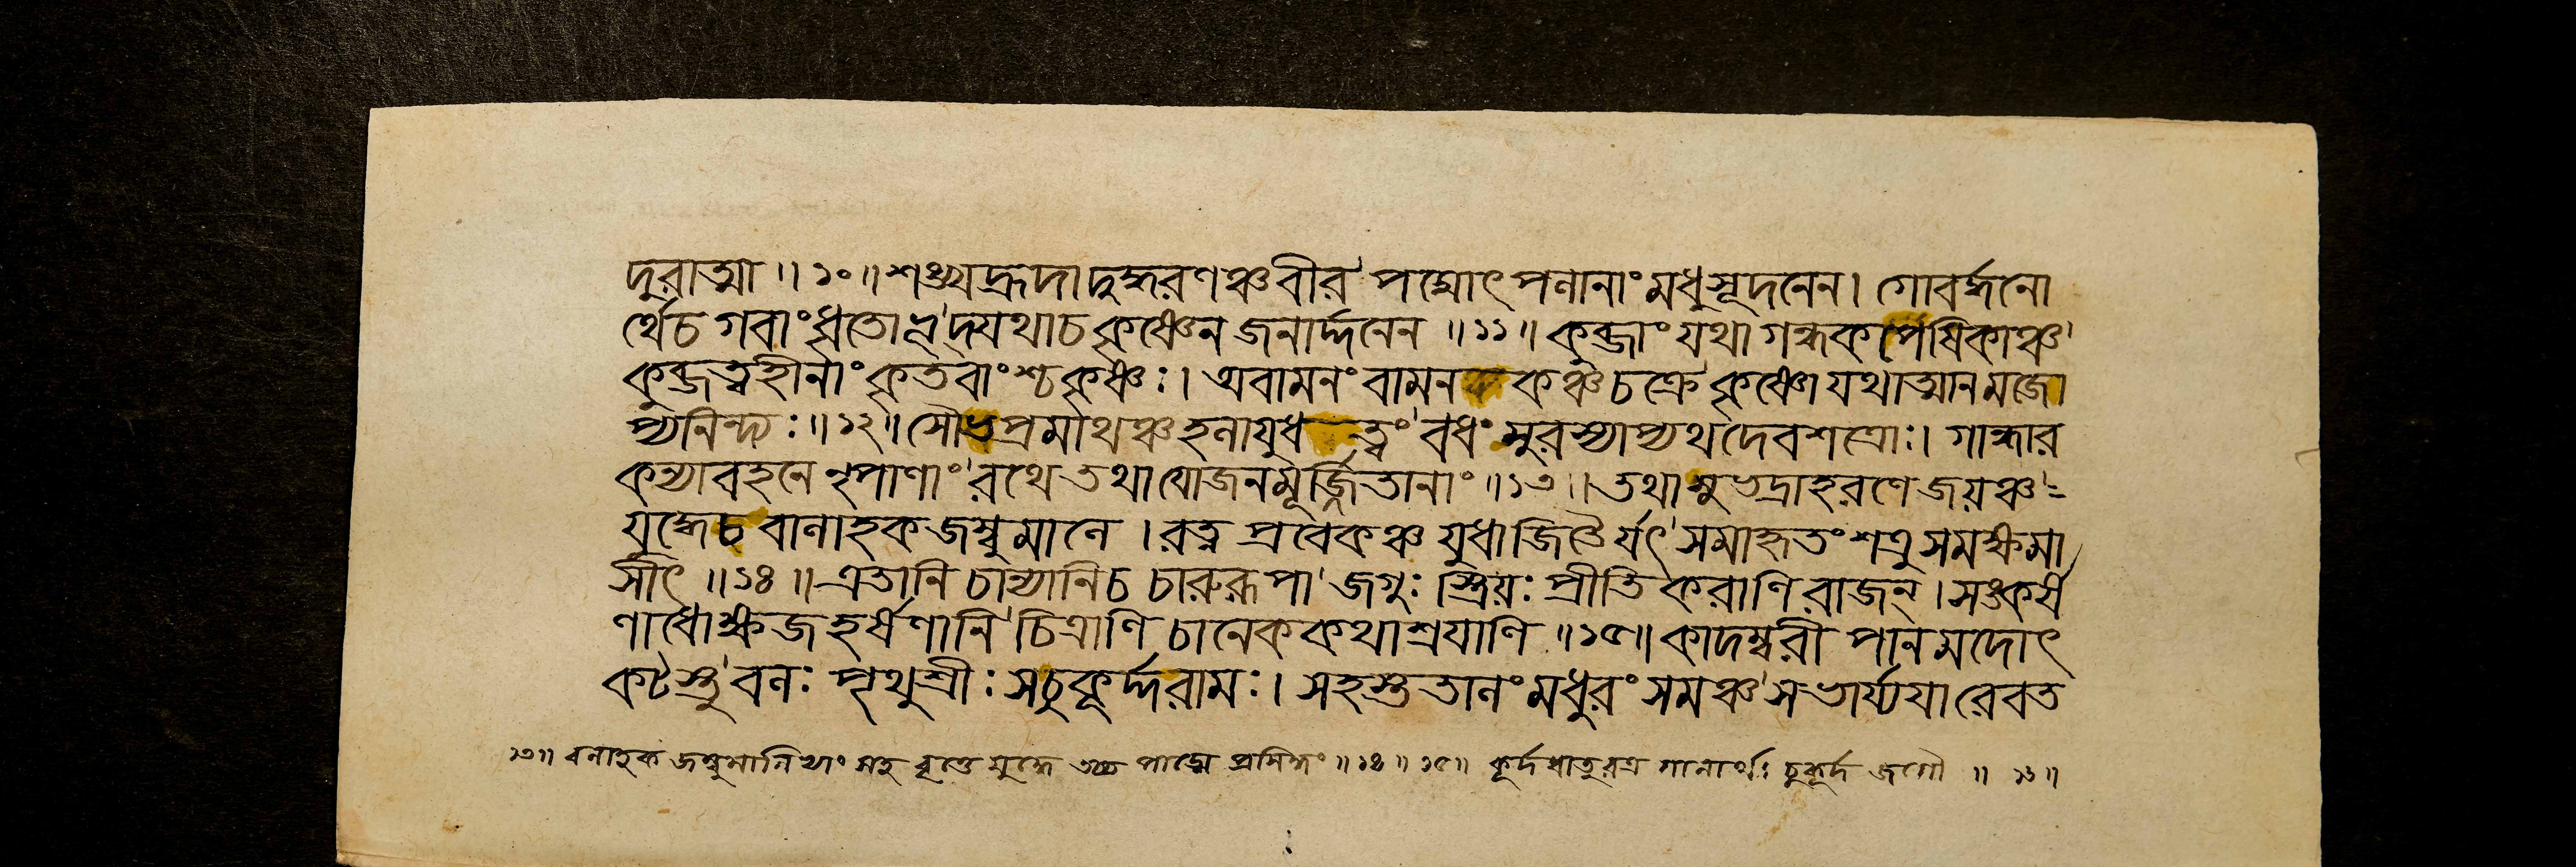 দুরাত্মা ॥ ১০ ॥ শঙ্খহ্রদাদুদ্ধরণঞ্চ বীর পদ্মোৎপলানাং মধুসূদনেন । গোবর্দ্ধনো
র্থেচ গবাং ধৃতোভূদ্যথাচ কৃষ্ণেন জনার্দ্দনেন ॥ ১১ ॥ কুব্জাং যথা গন্ধকপেষিকাঞ্চ
কুব্জত্বহীনাং কৃতবাংশ্চ কৃষ্ণঃ । অবামনং বামনকঞ্চ চক্রে কৃষ্ণো যথাত্মানমজো
প্যনিন্দ্যঃ ॥ ১২ ॥ সৌভপ্রমাথঞ্চ হলাযুধত্বং বধং মুরস্যাপ্যথ দেবশত্রোঃ । গান্ধার
কন্যাবহনে নৃপাণাং রথে তথা যোজনমূর্জ্জিতানাং ॥ ১৩ ॥ তথা সুভদ্রাহরণে জয়ঞ্চ
যুদ্ধেচ বালাহকজম্বুমালে । রত্নপ্রবেকঞ্চ যুধাজিতৈর্যৎ সমাহৃতং শত্রুসমক্ষমা
সীৎ ॥ ১৪ ॥ এতানি চান্যানিচ চারুরূপা জগুঃ স্ত্রিয়ঃ প্রীতিকরাণি রাজন্ । সঙ্কর্ষ
ণাধোক্ষজহর্ষণানি চিত্রাণি চানেককথাশ্রযাণি ॥ ১৫ ॥ কাদম্বরী পানমদোৎ
কটস্তু বলঃ পৃথুশ্রীঃ সচুকূর্দ্দ রামঃ । সহস্ততালং মধুরং সমঞ্চ সভার্য্যযা রেবত
১৩ ॥ বলাহক জম্বুমালিভ্যাং সহ যুদ্ধে পাদ্মে প্রসিদ্ধং ॥ ১৪ ॥ ১৫ ॥ কূর্দধাতুরত্র গানার্থঃ চুকূর্দ জগৌ ॥ ১৬ ॥